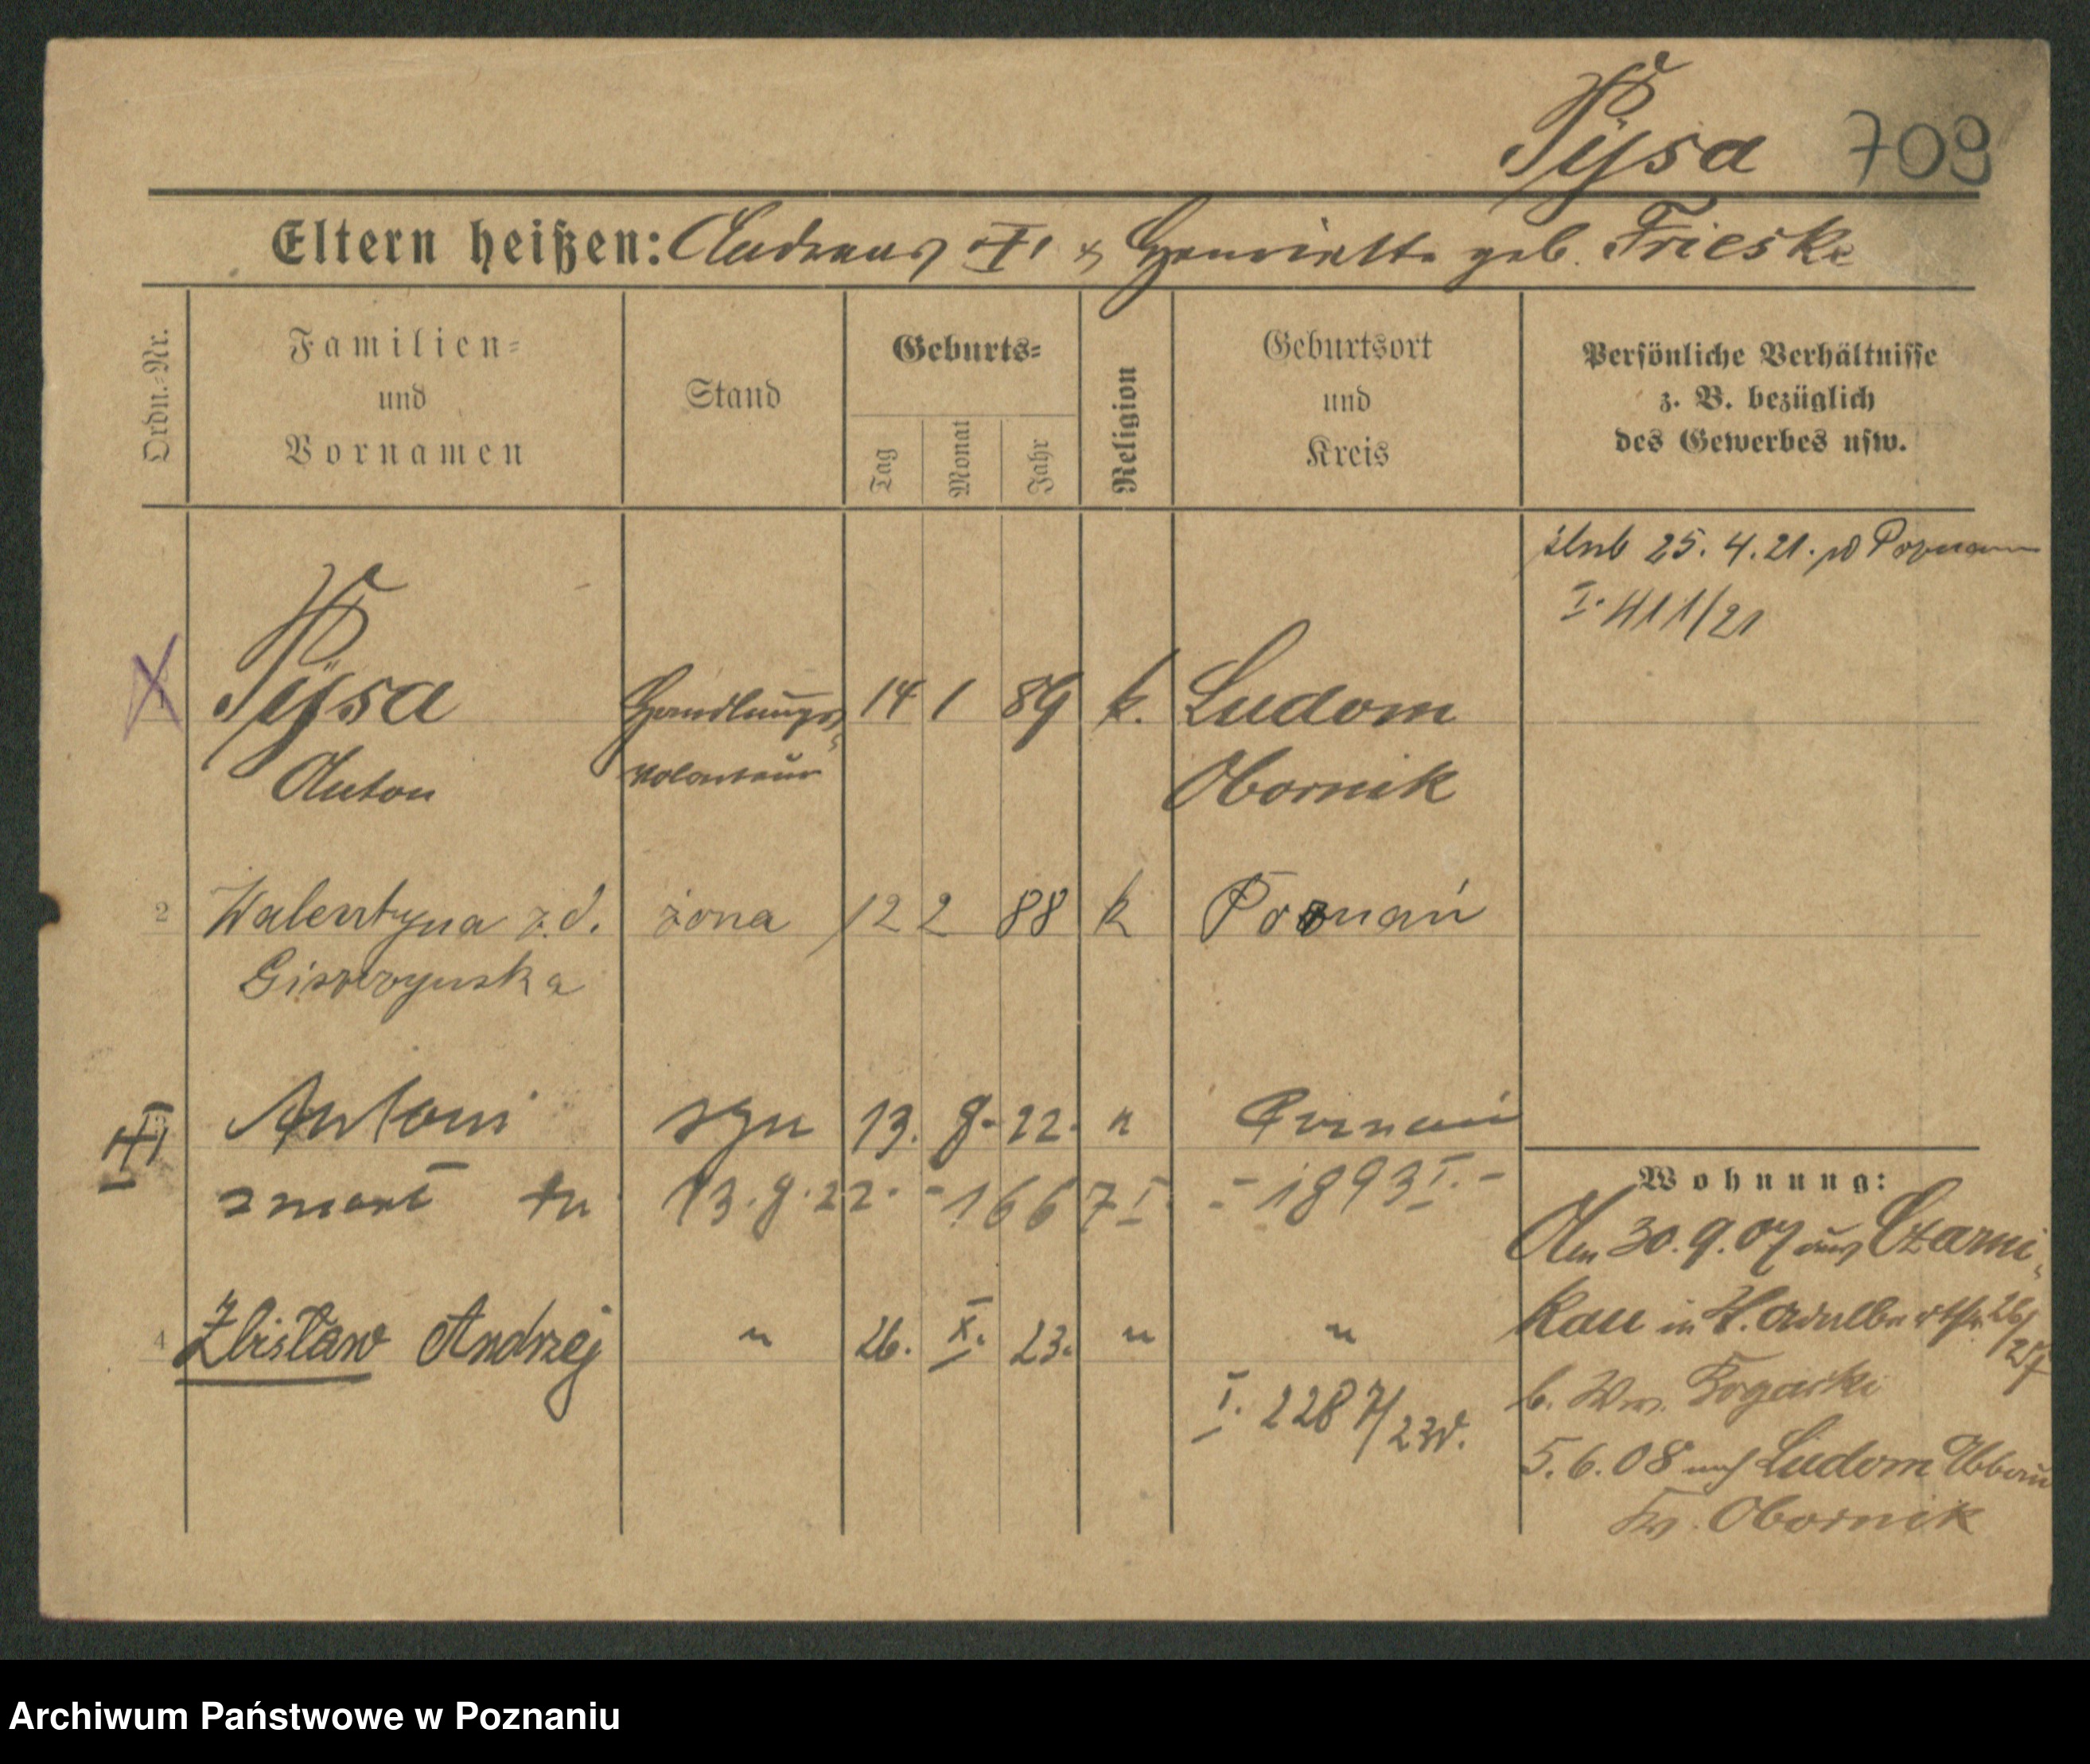 Pysa 709
Eltern heißen: Andreas † & Henriette geb. Frieske
Ordn.-Nr.
Familien-
und
Vornamen
Stand
Geburts-
Tag
Monat
Jahr
Religion
Geburtsort
und
Kreis
Persönliche Verhältnisse
z. B. bezüglich
des Gewerbes usw.
ślub 25. 4. 21. w Poznaniu
I. 411/21
Pysa Handlungs- 14 1 89 k. Ludom
Anton volonteur Obornik
2 Walentyna z.d. żona 12 2 88 k Poznań
Antoni syn 13. 9. 22. " Poznań
zmarł tu 13. 9. 22. - 1667 I - 1893 I. -
4 Zbisław Andrzej " 26. X. 23. " "
I. 2287/23
Wohnung:
Am 30. 9. 07 aus Czarni-
kau in St. Adalbertstr. 26/27
b. Ww.
5. 6. 08 nach Ludom Abbau
Kr. Obornik
Archiwum Państwowe w Poznaniu